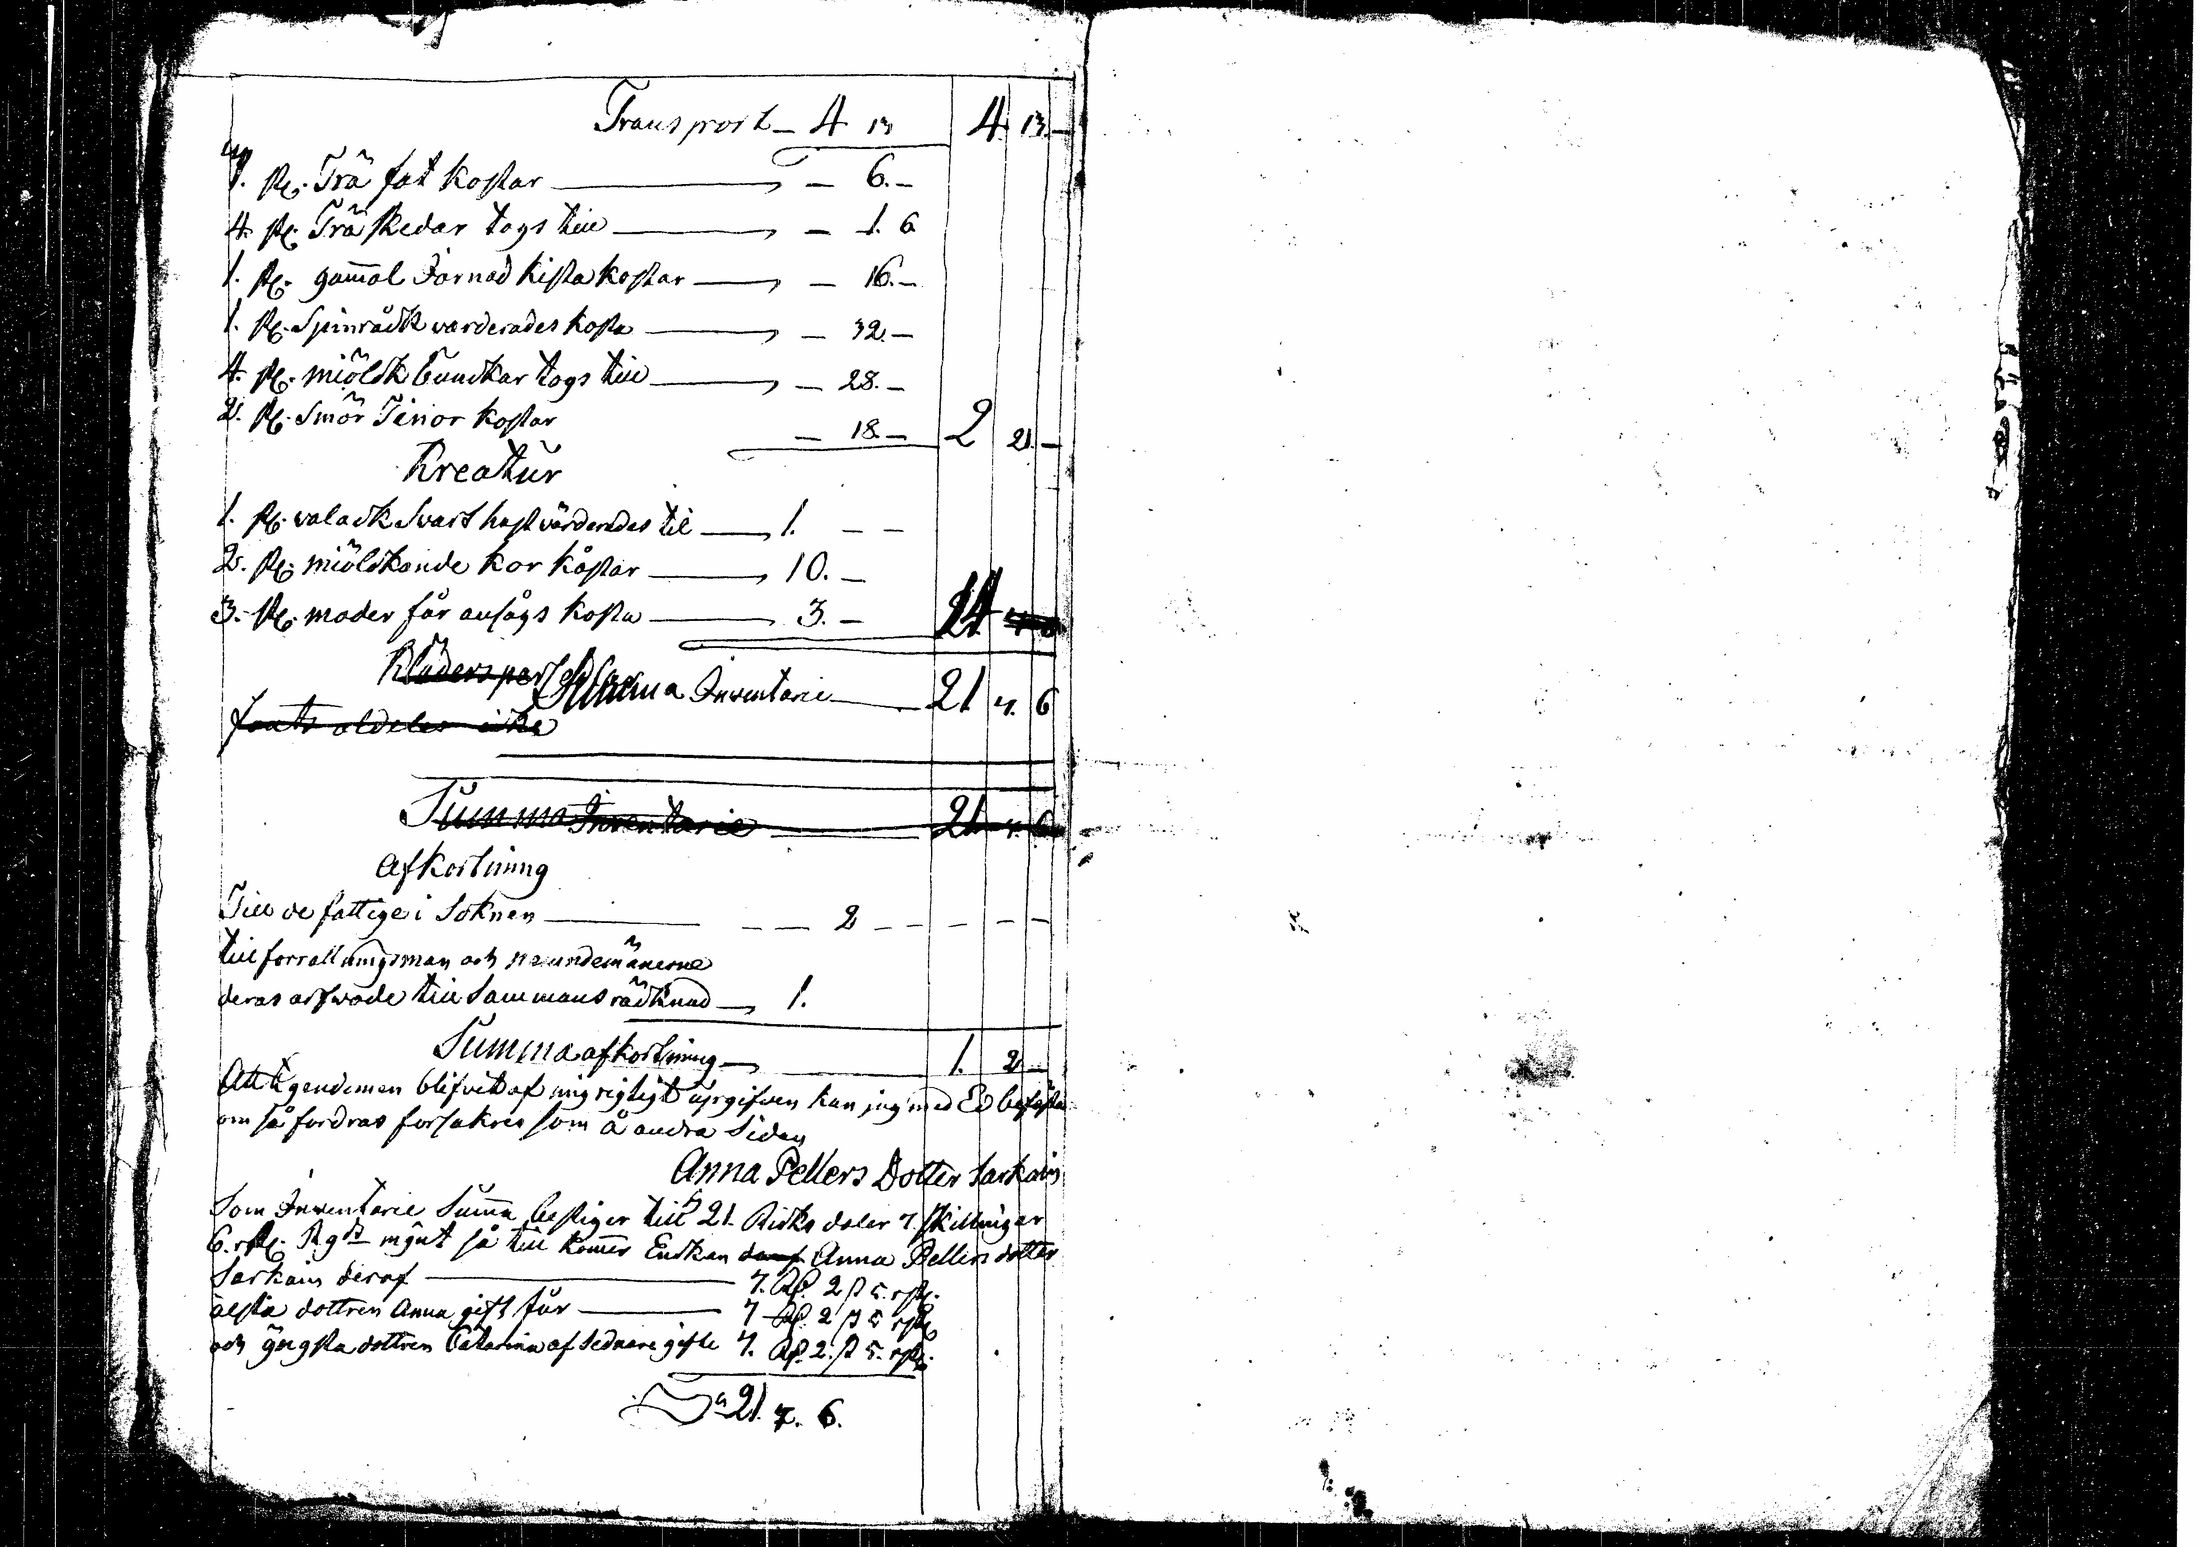 Transport - 4 13 4. 13 -
1. st. Trä fat kostar - 6. -
4. st. Trä skedar togs till - 1. 6
1. st. gam̄al Järnad kista kostar - 16. -
1. st. Spinråck varderades kosta - 32. -
4. st. miölck bunckar togs till - 28. -
2. st. Smör Tinor kostar - 18. - 2 21. -
Kreatur
1. st. valack Svart häst värderades til 1. - -
2. st. miölckande kor kåstar 10. -
3. st. moder får ansågs kosta 3. - 14
Kläderspersedlar
Summa Inventarie 21 7. 6
fants aldeles icke
Summa Inventarie 21 7. 6
Afkortning
Till de fattige i Soknen - - 2 - - - - -
till forrattningsman och
deras arfwode till Sammans räcknad 1.
Summa afkortning 1. 2 -
Att Egendomen blifvit af mig rigtigt upgifven kan jag med Ed befästa
om så fordras forsakres som å andra Sidan
Anna Pellers Dotter Sarkain
Som Inventarie Sum̄a bestiger till 21. Ricks daler 7. skillingar
6. rst. Rgs mÿnt så till kom̄er Enckan Anna Pellers dotter
Sarkain deraf 7. Rd. 2 s 5. rst.
älsta dottren Anna gift får 7 Rd. 2 s 5 rst
och yngsta dottren Catarina af sednare gifte 7. Rd. 2. s 5. rst.
Sa 21. 7. 6.